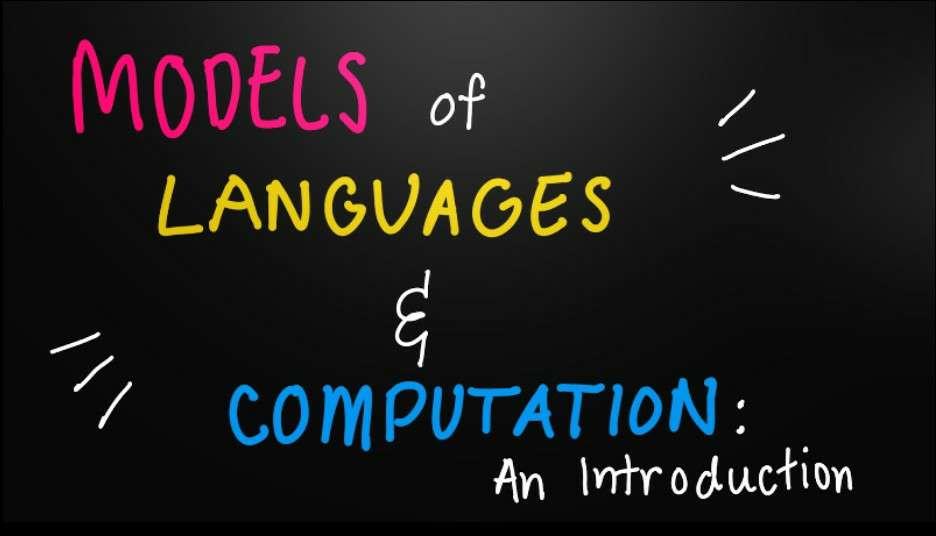 MODELS of
LANGUAGES
&
COMPUTATION:
An Introduction